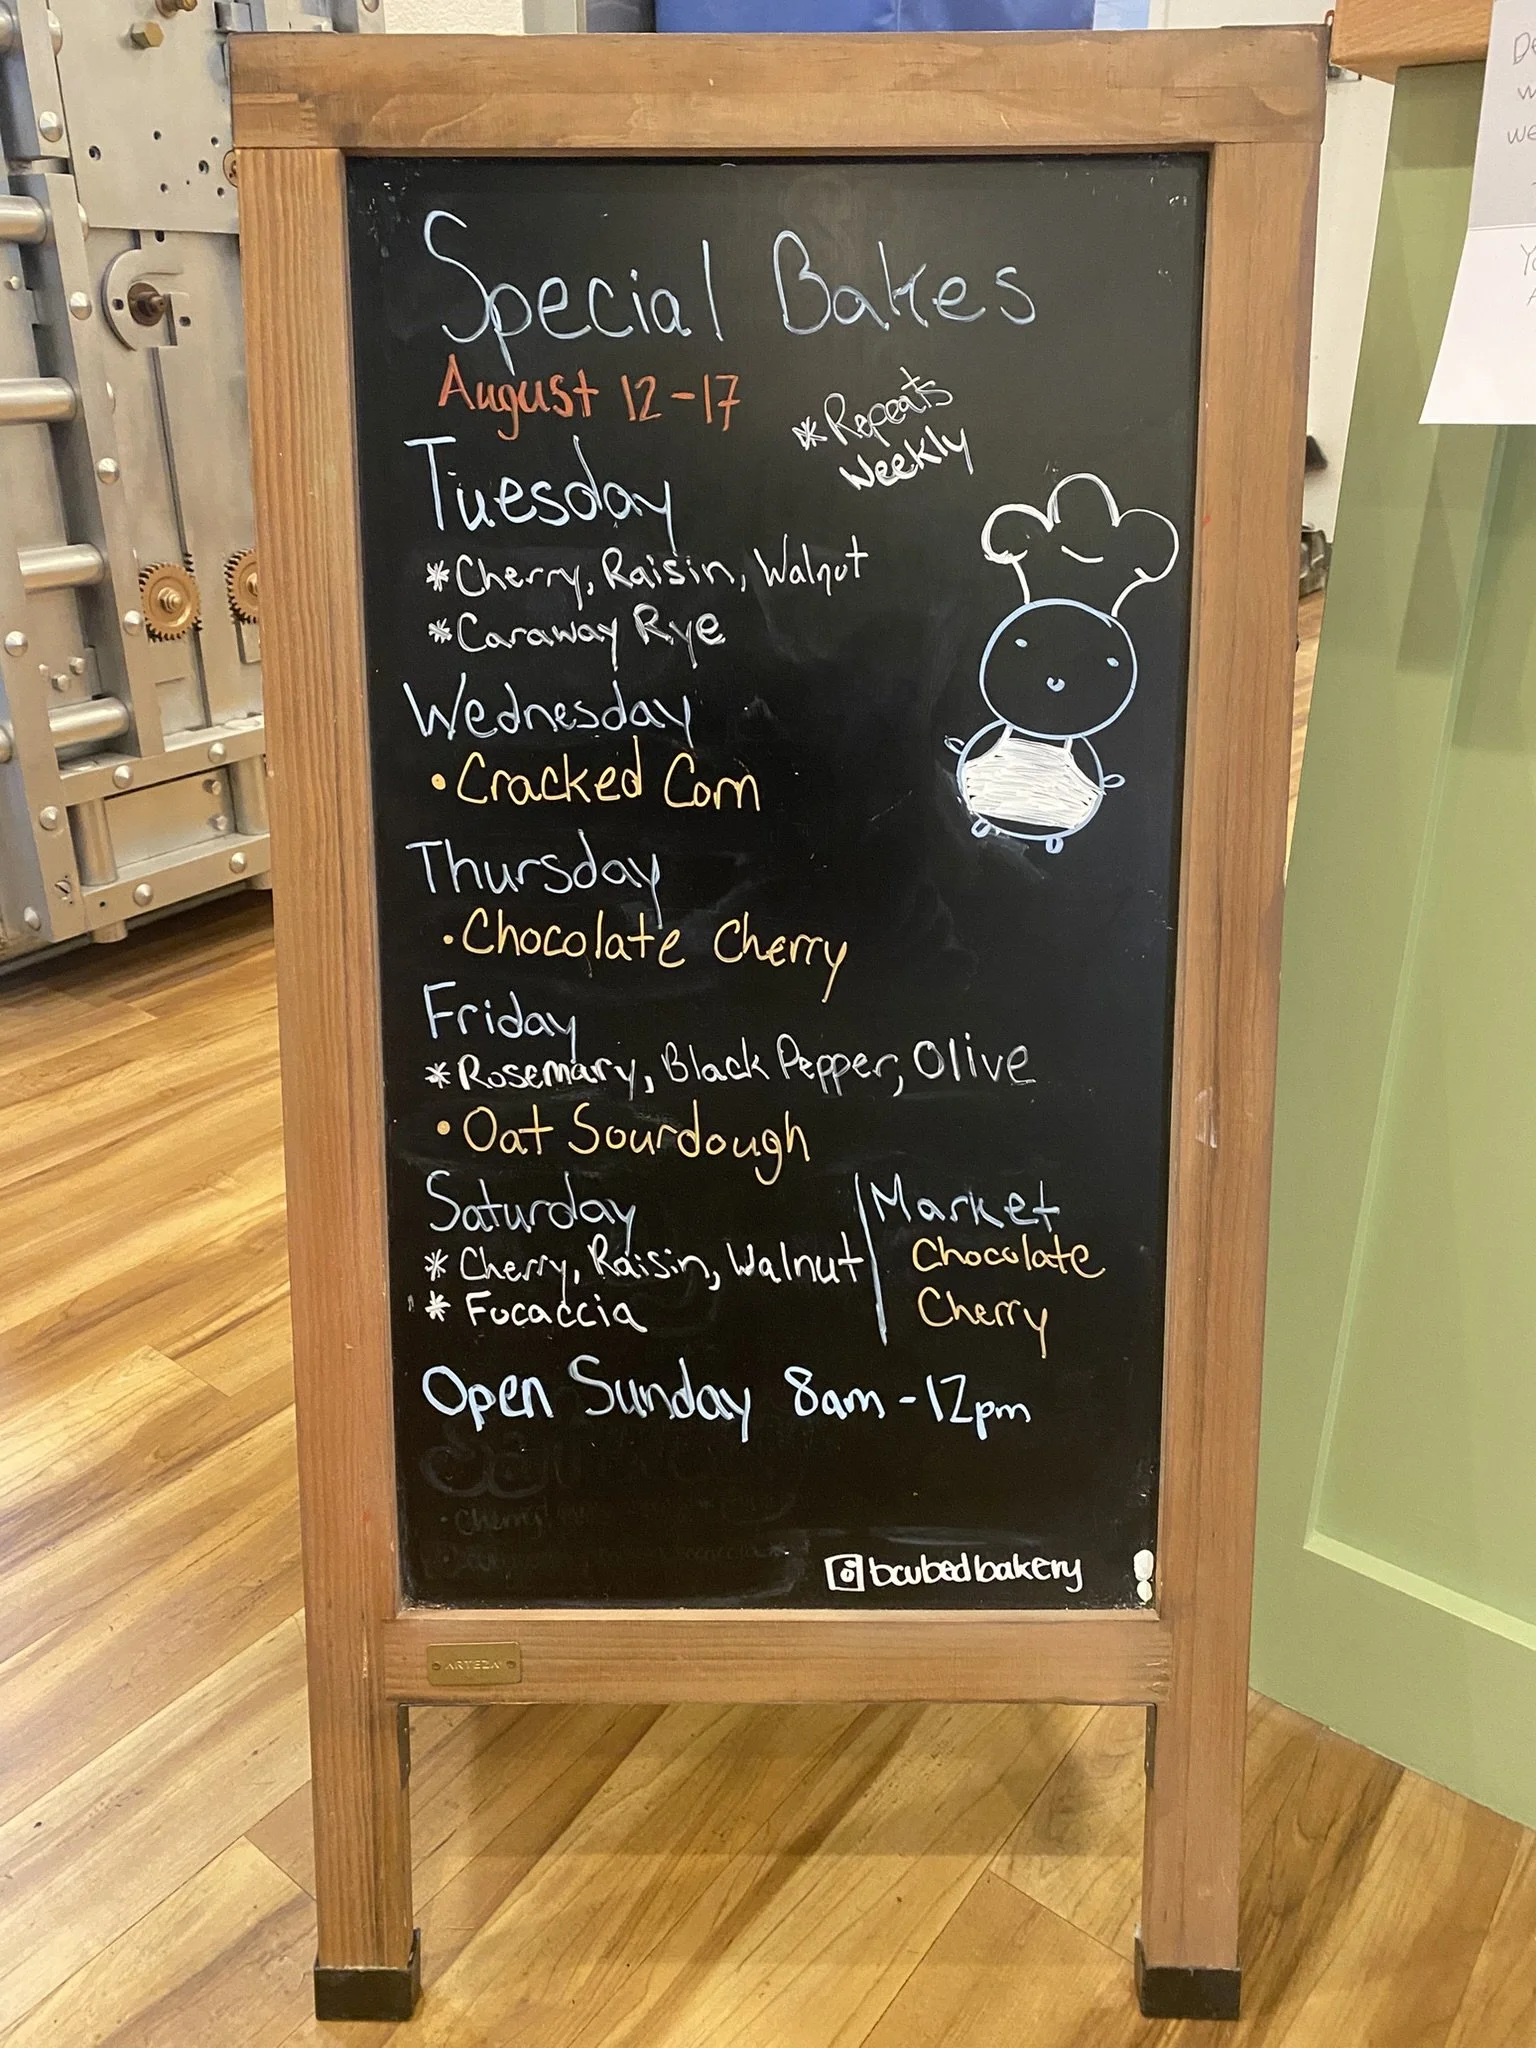 Special Bakes
August 12-17
* Repeats
Weekly
Tuesday
* Cherry, Raisin, Walnut
* Caraway Rye
Wednesday
• Cracked Corn
Thursday
• Chocolate Cherry
Friday
* Rosemary, Black Pepper, Olive
• Oat Sourdough
Saturday
* Cherry, Raisin, Walnut
* Focaccia
Market
Chocolate
Cherry
Open Sunday 8am-12pm
bcubedbakery
ARTEZA